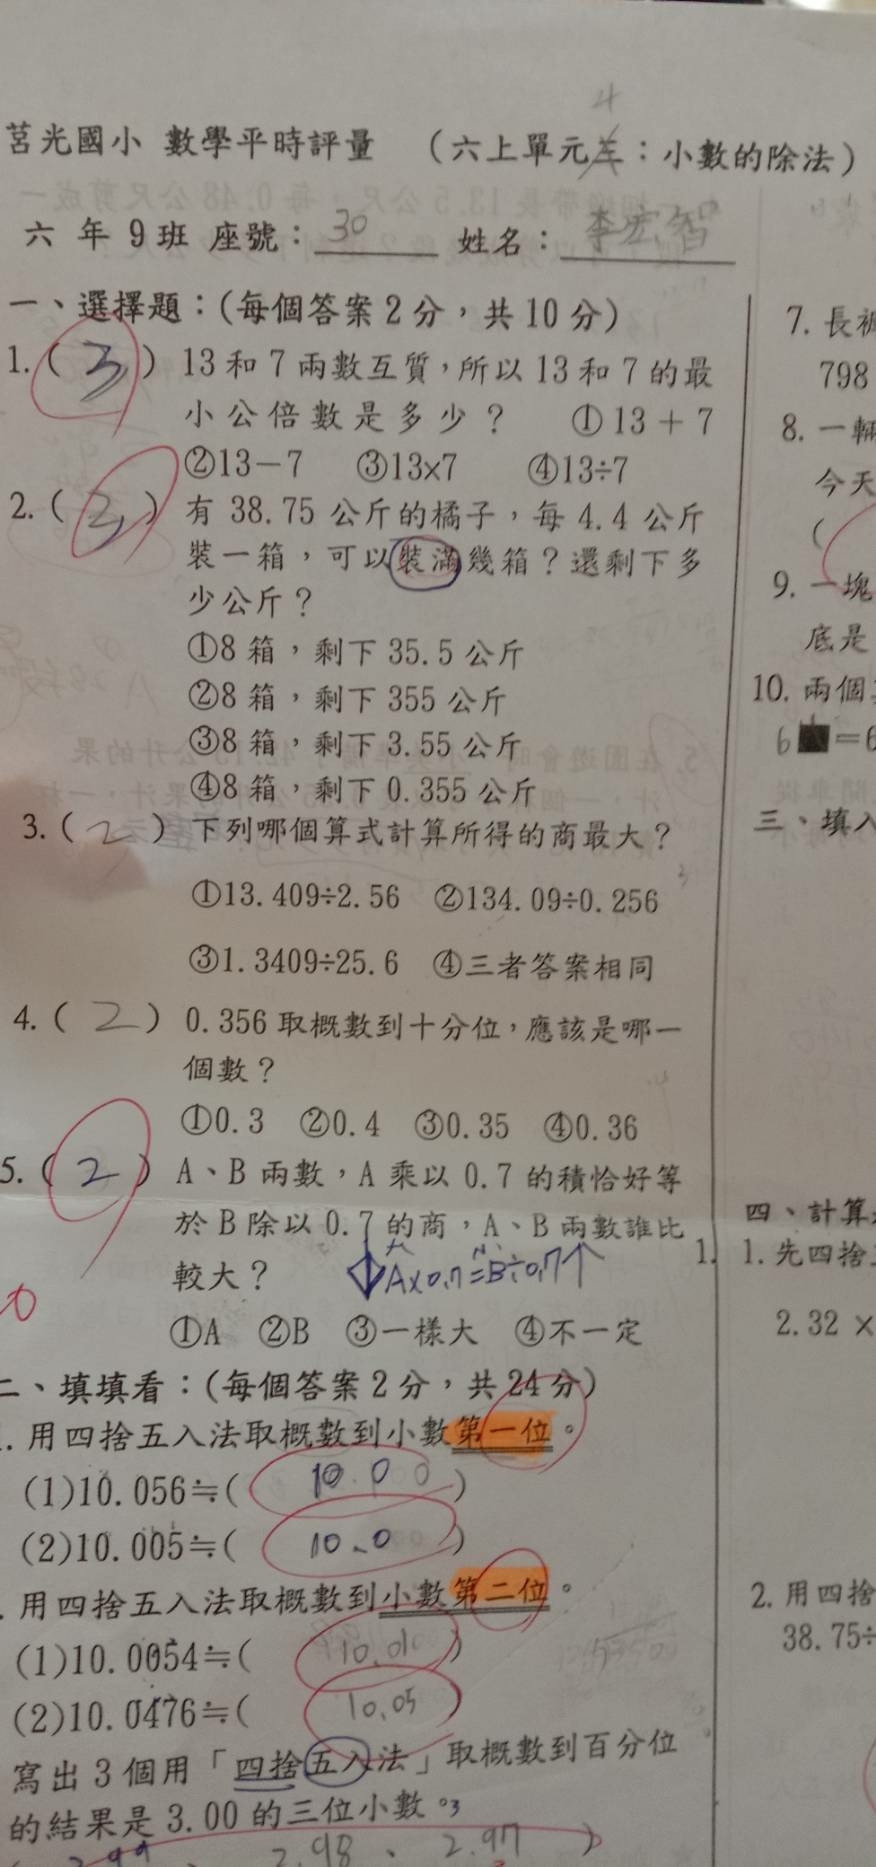 4
莒光國小 數學平時評量 （六上單元三：小數的除法）
六 年 9班 座號：30 姓名：李宏智
一、選擇題：(每個答案2分，共10分)
1.( 3 ) 13和7兩數互質，所以13和7的最
小公倍數是多少？ ①13＋7
②13－7 ③13×7 ④13÷7
2.( 3 ) 有 38.75 公斤的橘子，每 4.4 公斤
裝一箱，可以裝滿幾箱？還剩下多
少公斤？
①8 箱，剩下 35.5 公斤
②8 箱，剩下 355 公斤
③8 箱，剩下 3.55 公斤
④8 箱，剩下 0.355 公斤
3.( 2 ) 下列哪個算式計算所得的商最大？
①13.409÷2.56 ②134.09÷0.256
③1.3409÷25.6 ④三者答案相同
4.( 2 ) 0.356 取概數到十分位，應該是哪一
個數？
①0.3 ②0.4 ③0.35 ④0.36
5.( 2 ) A、B 兩數，A 乘以 0.7 的積恰好等
於 B 除以 0.7 的商，A、B 兩數誰比
較大？ A×0.7=B÷0.7
①A ②B ③一樣大 ④不一定
二、填填看：(每個答案2分，共24分)
. 用四捨五入法取概數到小數第一位。
(1)10.056≒( 10.0 )
(2)10.005≒( 10.0 )
. 用四捨五入法取概數到小數第二位。
(1)10.0054≒( 10.01 )
(2)10.0476≒( 10.05 )
寫出 3 個用「四捨五入法」取概數到百分位
的結果是 3.00 的三位小數。3
2.99 、 2.98 、 2.97 )
7. 長褲
798
8. 一輛
今天
(
9. 一塊
底是
10. 兩個
6■=6
三、填入
四、計算
1. 1. 先四捨
2.32 ×
2. 用四捨
38.75÷